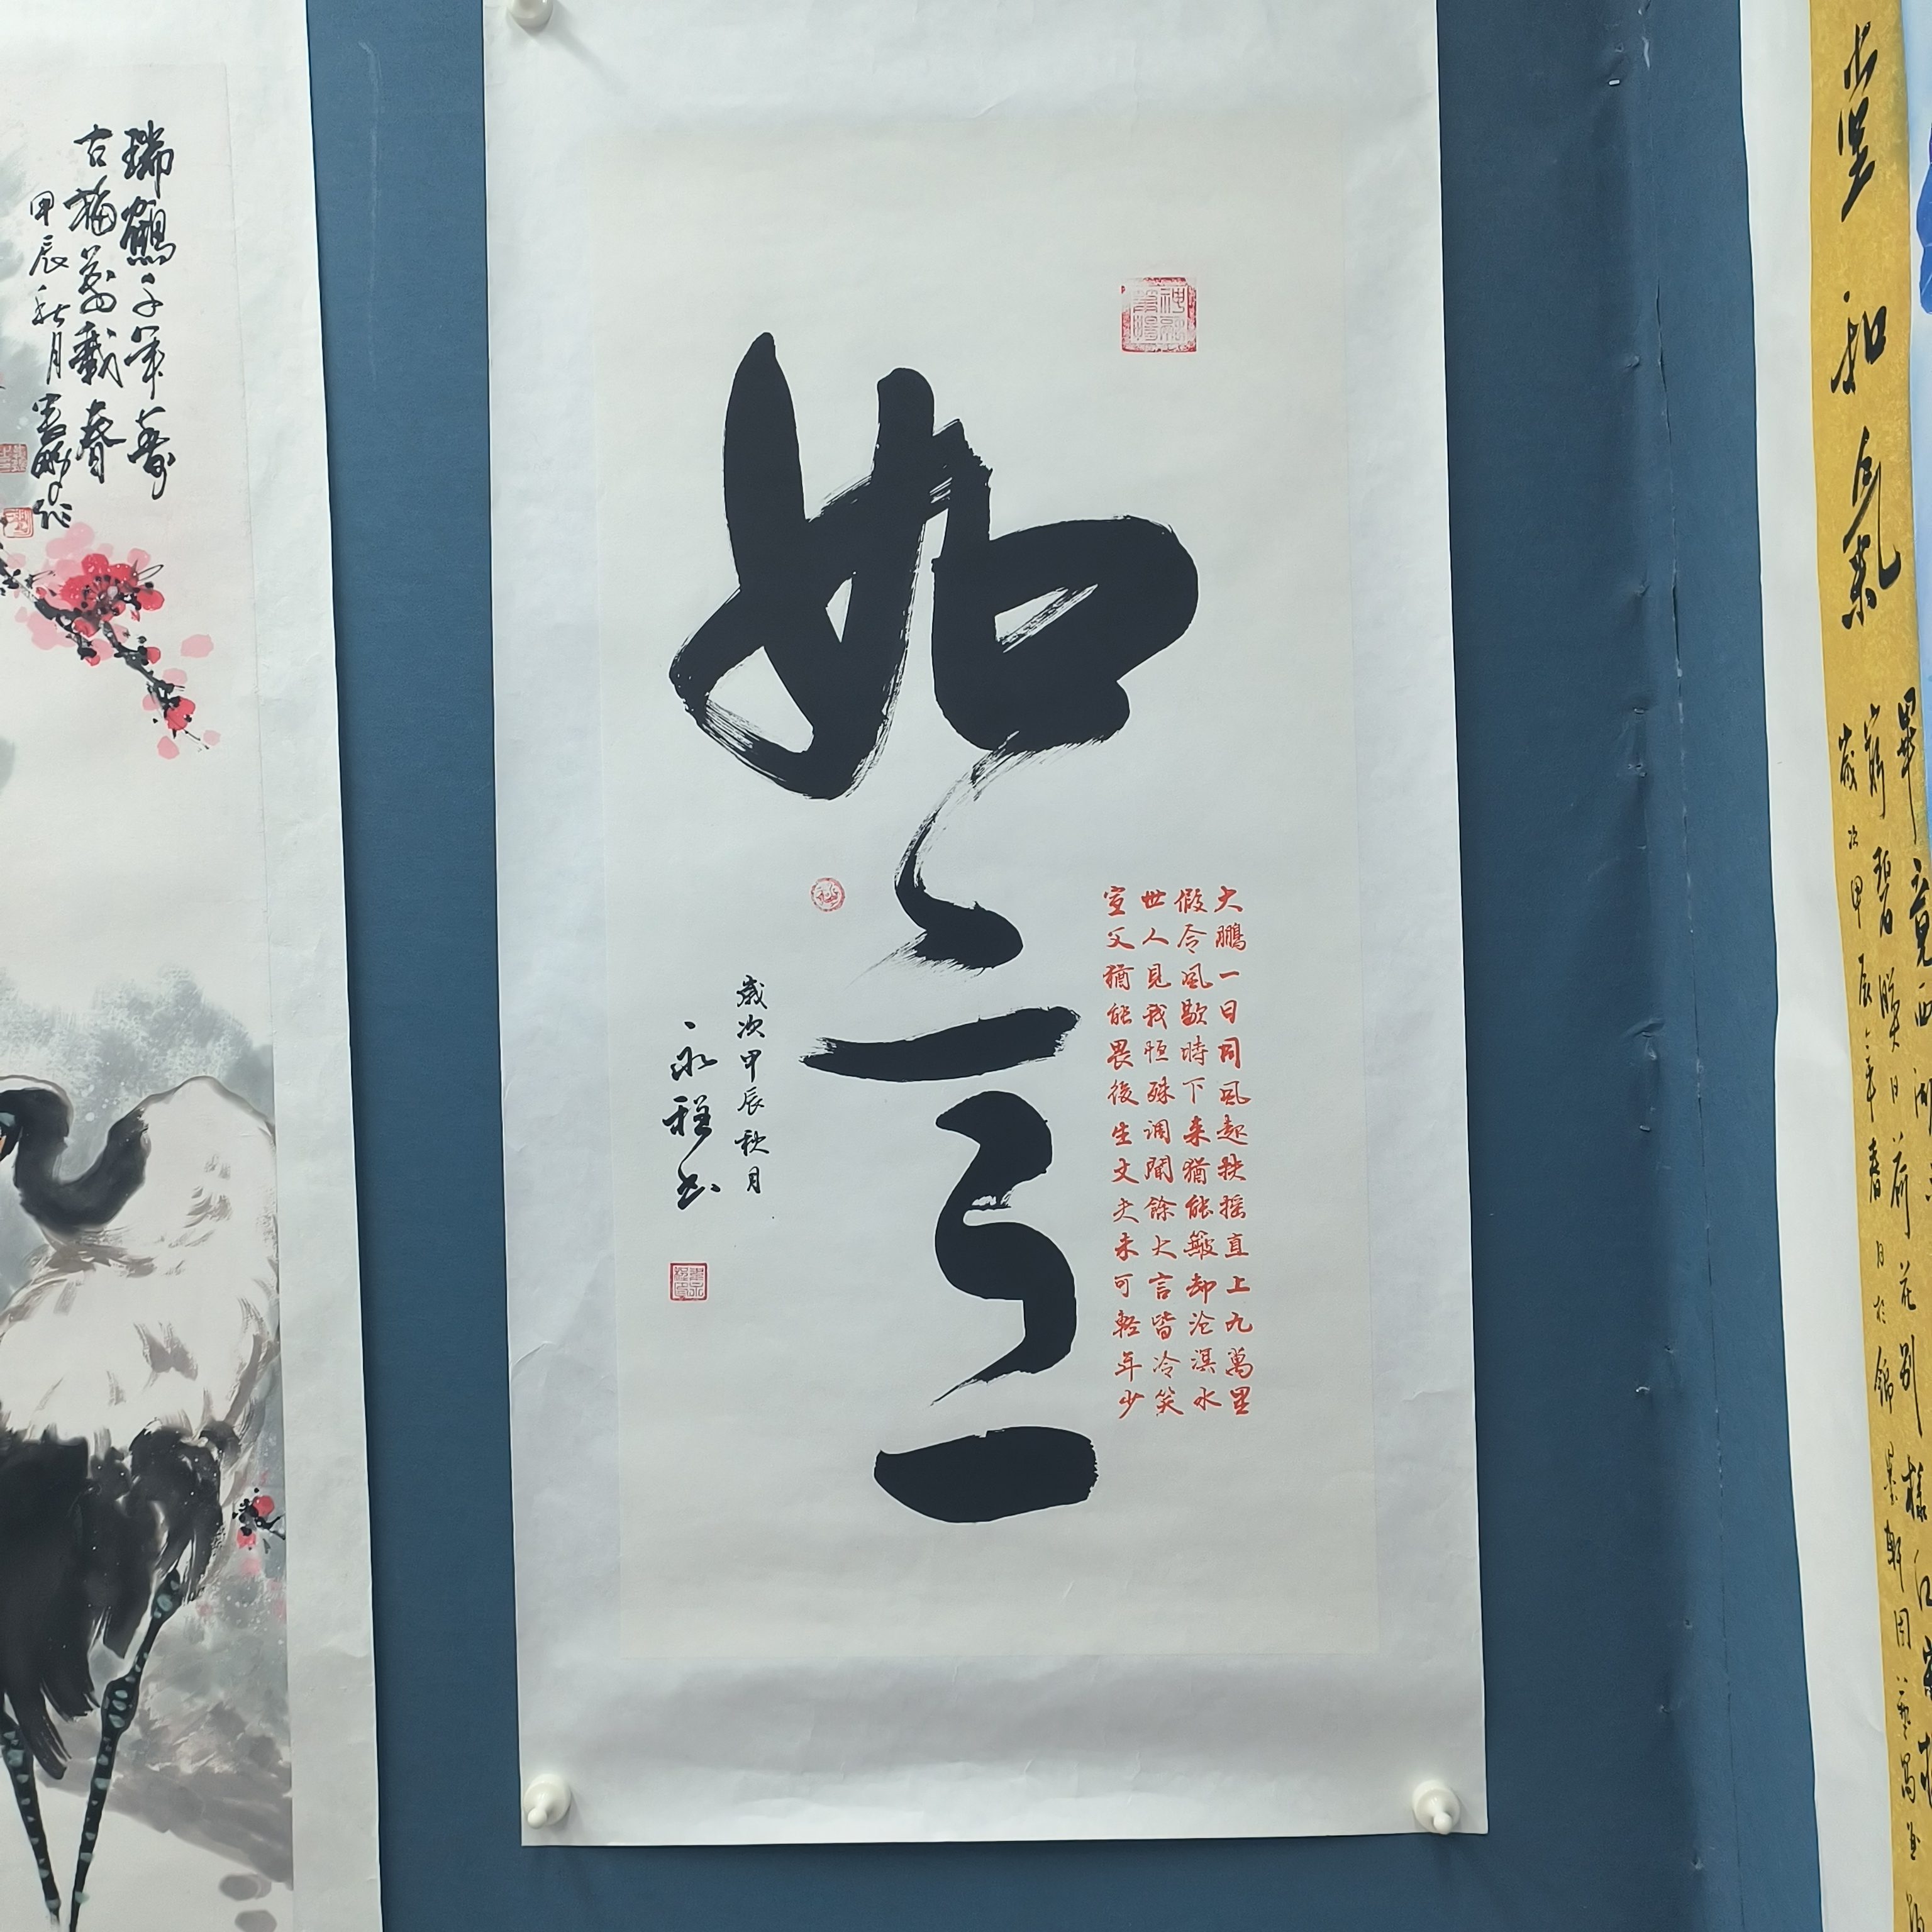 瑞鶴千年壽
古梅萬載春
甲辰秋月
如意
大鵬一日同風起扶摇直上九萬里
假令風歇時下来猶能簸却沧溟水
世人見我恒殊调聞餘大言皆冷笑
宣父猶能畏後生丈夫未可輕年少
歲次甲辰秋月
永程书
和氣
畢竟西湖
窮碧映日荷花别樣红
歲次甲辰